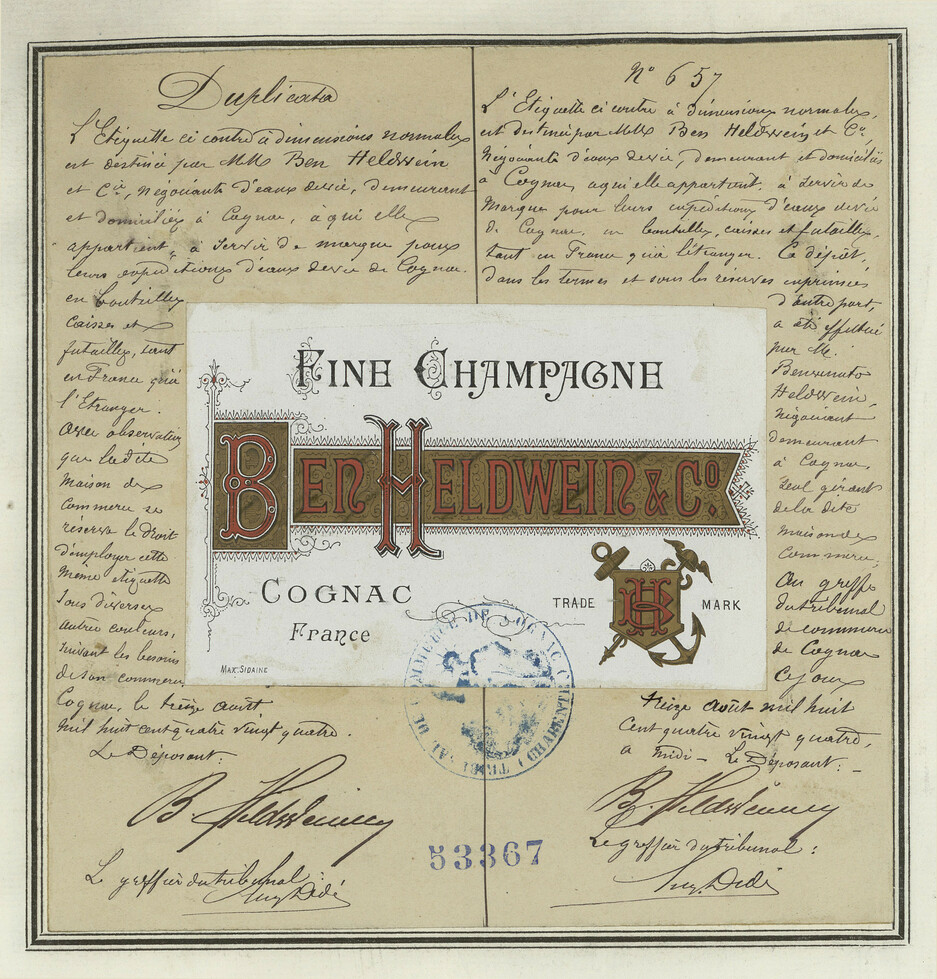 Duplicata
L'Etiquette ci contre à dimensions normales
est destinée par MM Ben Heldwein
et Cie, Négociants d'eaux devie, demeurant
et domiciliés à Cognac, à qui elle
appartient, à servir de marque pour
leurs expéditions d'eaux devie de Cognac.
en bouteilles
caisses et
futailles, tant
en France qu'à
l'Etranger.
Avec observation
que ladite
maison de
Commerce se
réserve le droit
d'employer cette
même etiquette
sous diverses
autres couleurs,
suivant les besoins
de son commerce
Cognac, le treize août
mil huit cent quatre vingt quatre.
Le Déposant:
B. Heldwein
Le greffier du tribunal:
No 657
L'Etiquette ci contre à dimensions normales,
est destinée par MM Ben Heldwein et Co,
Négociants d'eaux devie, demeurant et domiciliés
à Cognac, a qui elle appartient, à servir de
Marque pour leurs expéditions d'eaux devie
de Cognac. en bouteilles, caisses et futailles,
tant en France qu'à l'étranger. Ce dépôt,
dans les termes et sous les réserves exprimées
d'autre part,
a été effectué
par M.
Benvenuto
Heldwein,
Négociant
demeurant
à Cognac,
seul gérant
de la dite
maison de
Commerce,
Au greffe
du tribunal
de commerce
de Cognac
Ce jour
treize août mil huit
cent quatre vingt quatre,
a midi - Le Déposant: -
B. Heldwein
Le greffier du tribunal:
FINE CHAMPAGNE
BEN HELDWEIN & Co.
COGNAC
France
TRADE MARK
BH
MAX. SIDAINE
TRIBUNAL DE COMMERCE DE COGNAC (CHARENTE)
53367